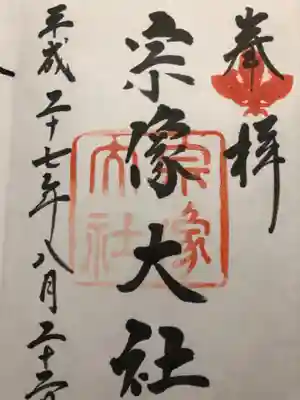 奉拝
宗像大社
平成二十七年八月二十二日
宗像
大社